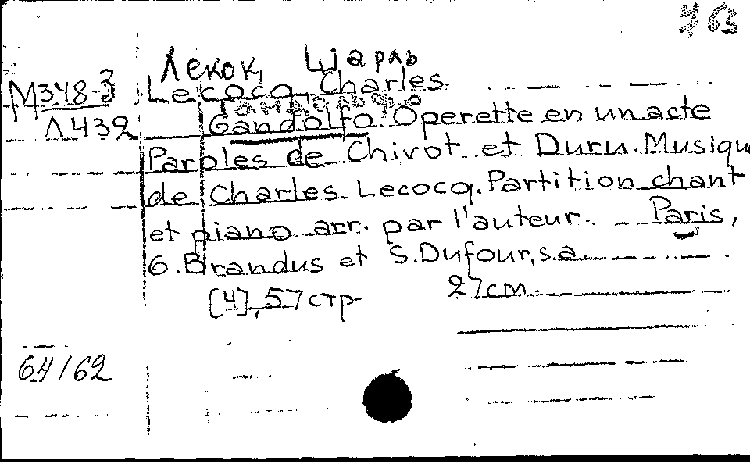 763
Лекок, Шарль
М378-3 Lecocq, Charles
Л432 Gandolfo. Operette en un acte
Paroles de Chivot et Duru. Musique
de Charles Lecocq. Partition chant
et piano arr. par l'auteur. Paris,
G. Brandus et S. Dufour, s.a.
[4], 57 стр 27cm.
64/62